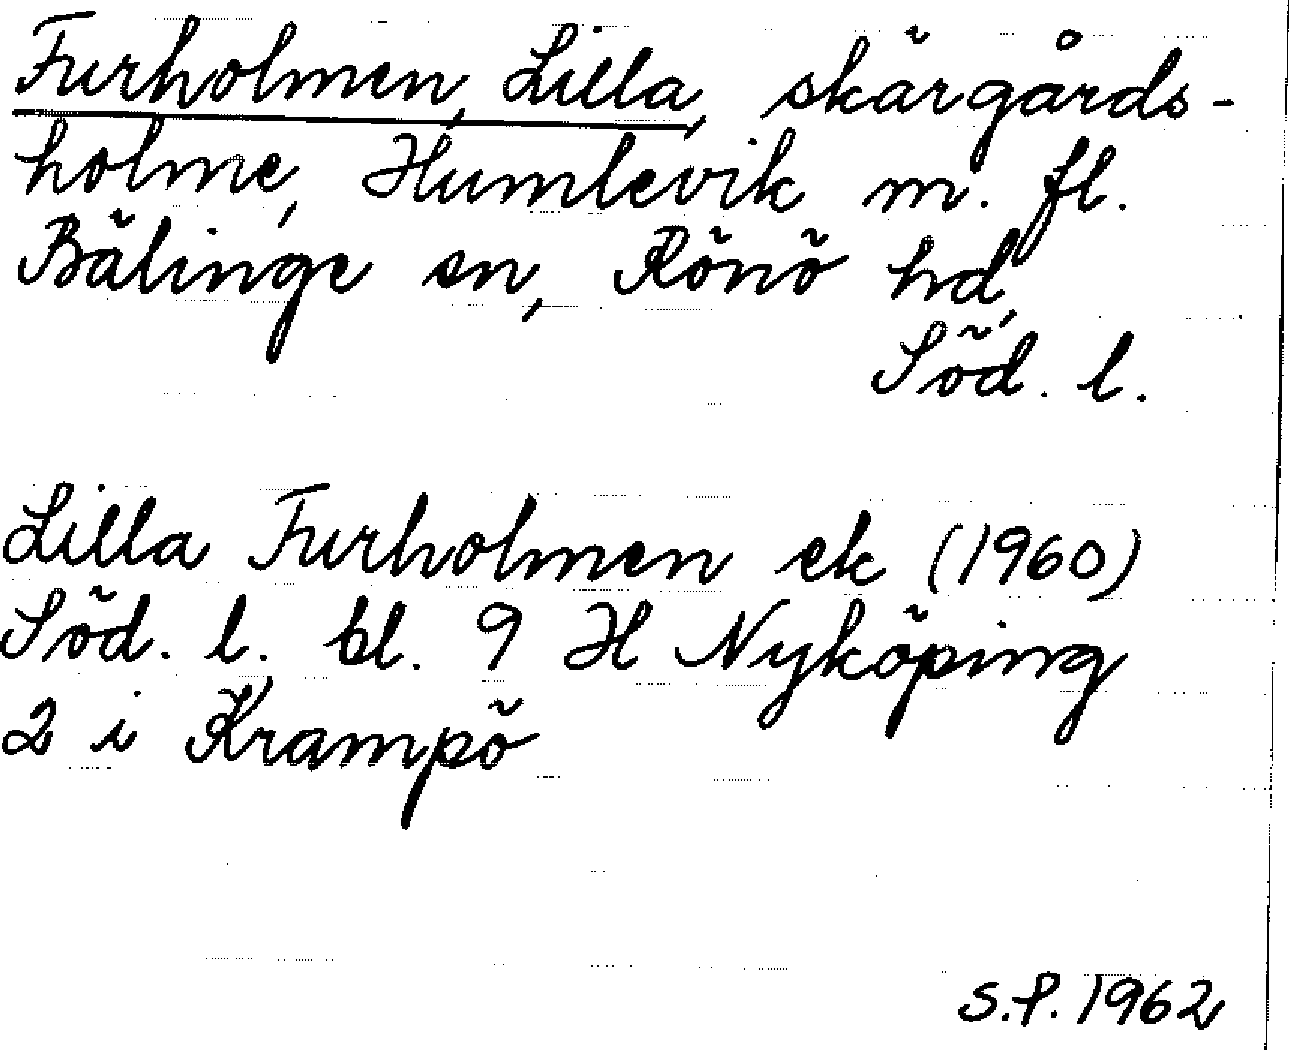 Furholmen, Lilla, skärgårds-
holme, Humlevik m. fl.
Bälinge sn, Rönö hd,
Söd. l.
Lilla Furholmen ek (1960)
Söd. l. bl. 9 H Nyköping
2 i Krampö
S.P. 1962